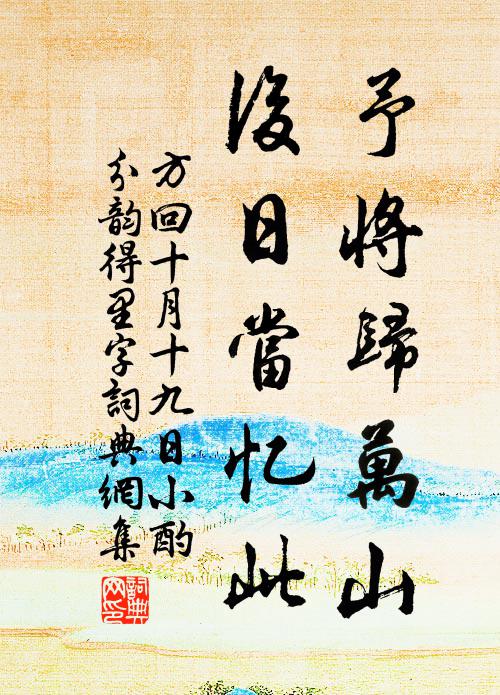 予將歸萬山
後日當忆此
方回十月十九日小酌
分韵得里字詞典網集
詞典
网印